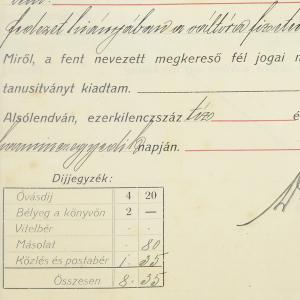 fedezet hiányában a váltóra fizetni
Miről, a fent nevezett megkereső fél jogai
tanusítványt kiadtam.
Alsólendván, ezerkilenczszáz tíz é
harminczegyedik napján.
Díjjegyzék:
Óvásdíj 4 20
Bélyeg a könyvön 2 —
Vitelbér - -
Másolat - 80
Közlés és postabér 1 35
Összesen 8 35